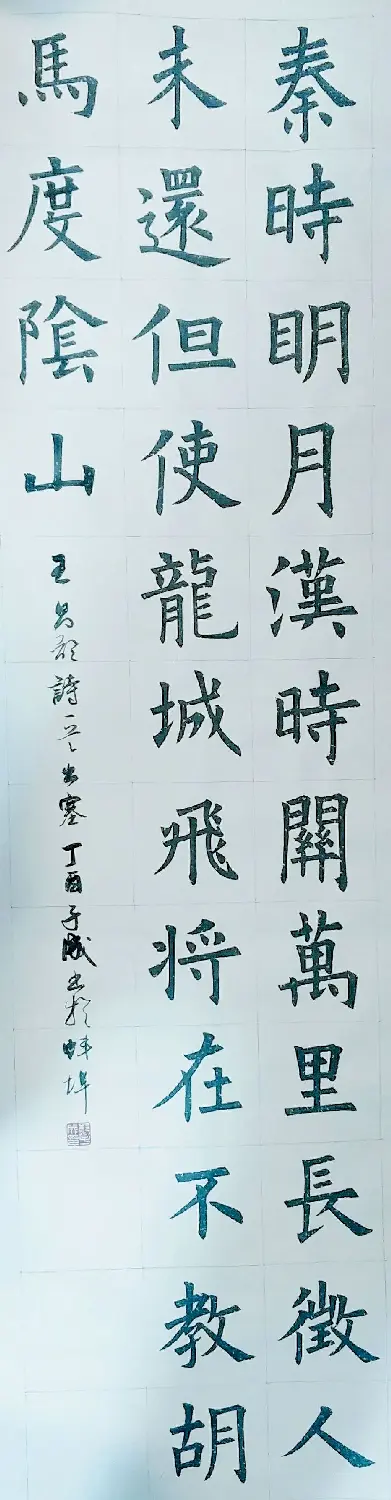 秦時明月漢時關萬里長徵人
未還但使龍城飛将在不教胡
馬度陰山
王昌齡詩一首出塞丁酉子成書於蚌埠